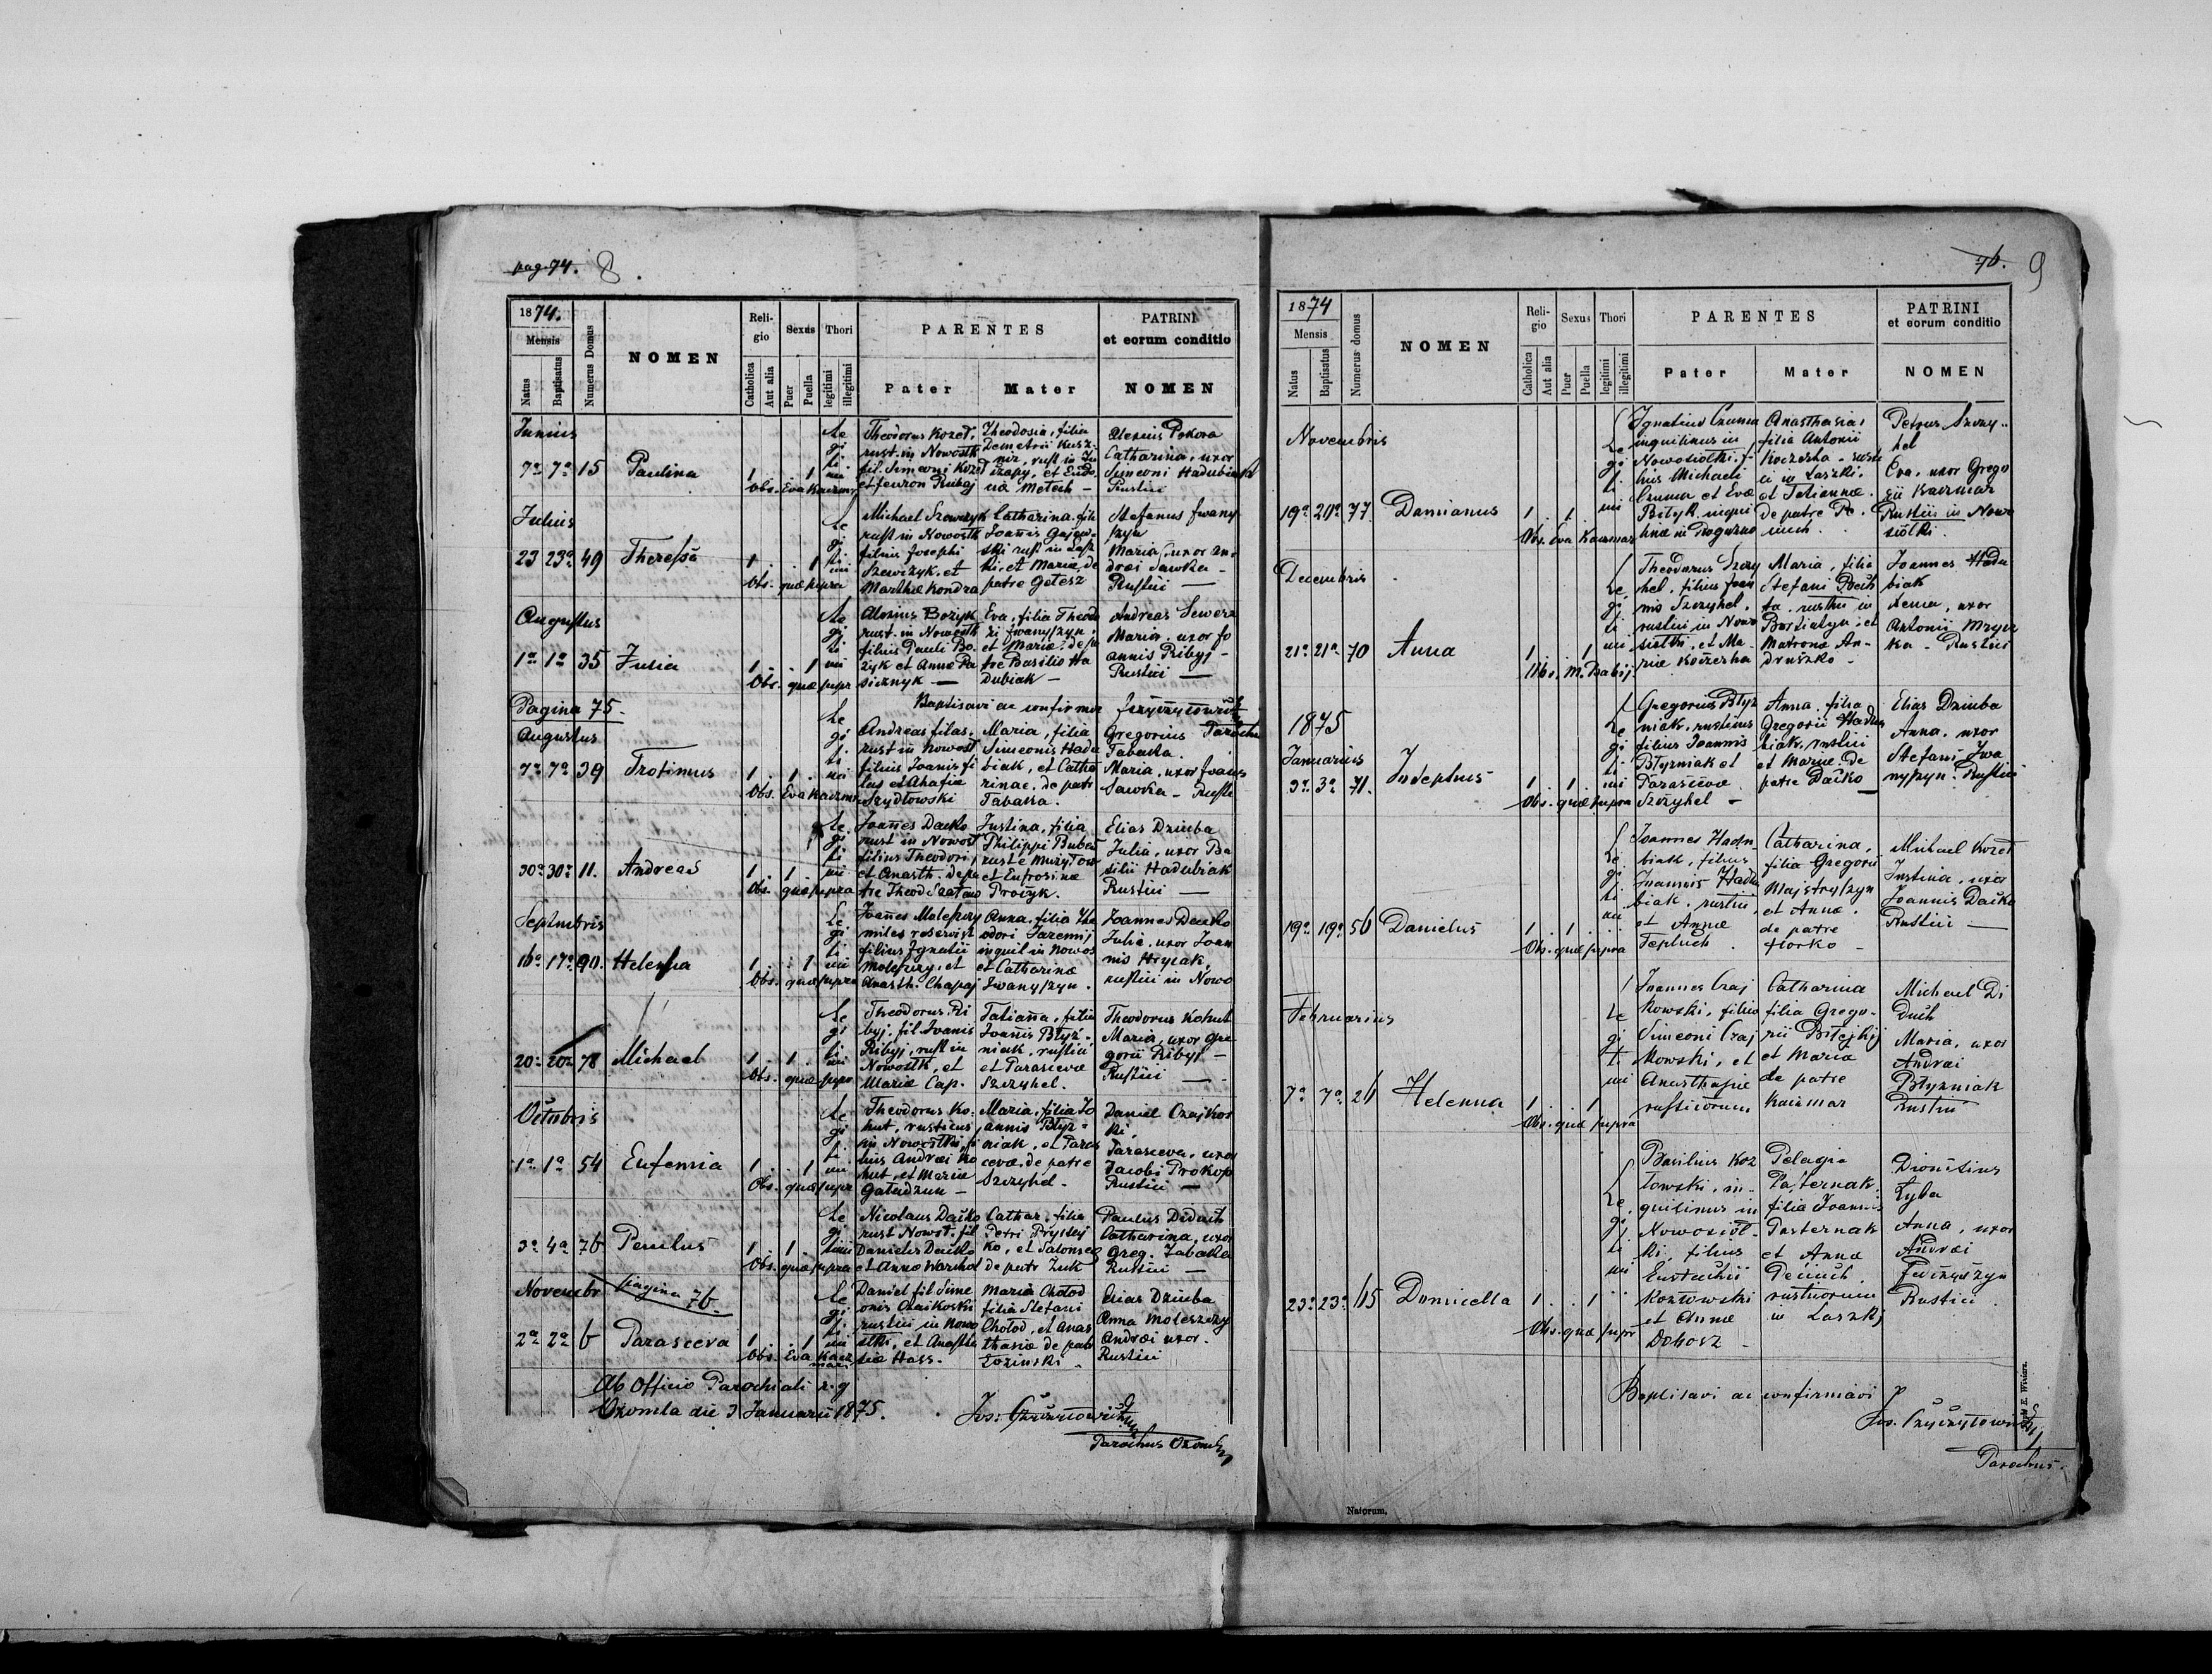 pag. 74. 8.
1874.
Mensis
Natus
Baptisatus
Numerus Domus
NOMEN
Religio
Catholica
Aut alia
Sexus
Puer
Puella
Thori
legitimi
illegitimi
PARENTES
Pater
Mater
PATRINI
et eorum conditio
NOMEN
Junius
7a 7a 15 Paulina 1 . . 1
Obs. Eva Kaczmar
Theodorus Kozeł,
rust. in Nowosiłk
fil. Simeonis Kozeł
Theodosia, filia
Demetrii Kusz-
nir, rust. in
Alexius Pokora
Catharina, uxor
Simeoni Hadubiak
Rustici
Julius
23 23a 49 Theressa 1 . . 1
Obs. quae supra
Michael Szewczyk
rust in Nowosiłk
filius Josephi
Szewczyk, et
Marthae Kondra
Catharina, fili
Joannis
ski rust in
ki, et Mariae, de
patre Getesz
Stefanus Iwany
szyn
Maria, uxor An-
dreae Sawka -
Rustici —
Augustus
1a 1a 35 Julia 1 . . 1
Obs. quae supr
Alexius Bożyk
rust. in Nowosiłk
filius Pauli Bo-
żyk et Annae Pa
sicznyk —
Eva, filia Theodo
ri Iwanyszyn,
et Mariae, de pa
tre Basilio Ha
dubiak -
Andreas Sewera
Maria, uxor Jo
annis Ribyj -
Rustici —
Pagina 75.
Baptisavi ac confirmavi
Parochus
Augustus
7a 7a 39 Trofimus 1 . 1 .
Obs. Eva Kaczmar
Andreas Filas,
rust in Nowosił
filius Joanis Fi
las et Ahafia
Szydłowski
Maria, filia
Simeonis Hadu
biak, et Catha
rinae, de patr
Tabaka.
Gregorius
Tabaka.
Maria, uxor Joanis
Sawka - Rusti
30a 30a 11. Andreas 1 . 1 .
Obs. quae supra
Joannes Daćko
rust in Nowosił
filius Theodori,
et Anasth. de pa
tre Theod
Justina, filia
Philippi
rust e
et Eufrosinae
Proćzyk.
Elias Dziuba
Julia, uxor Ba
silii Hadubiak
Rustici —
Septembris
16a 17a 90. Helenna 1 . . 1
Obs. quae supra
Joannes Moleszczy
miles reservist
filius Ignatii
Moleszczy, et
Anasth. Chapaj
Anna, filia The
odori Jaremij
inquil in Nowos
et Catharinae
Iwanyszyn.
Joannes Daćko
Julia, uxor Joan
nis Hrycak,
rustici in Nowo
20a 20a 78 Michael 1 . 1 .
Obs. quae supr
Theodorus Ri
byj, fil Ivanis
Ribyj, rust in
Nowosiłk, et
Mariae Cap.
Tatianna, filia
Joannis Błyź-
niak, rustici
et Parascevae
Szczyhel.
Theodorus Kohut
Maria, uxor Gre
gorii Ribyj -
Rustici —
Octobris
1a 1a 54 Eufemia 1 . . 1
Obs. quae supr
Theodorus Ko-
hut, rusticus
in Nowosiłki, fi
lius Andreae Ko
hut, et Mariae
Gałudzun -
Maria, filia Jo
annis Błyź-
niak, et Paras
cevae, de patre
Szczyhel -
Daniel Czajkow
ki,
Parasceva, uxor
Jacobi Prokop
Rustici —
3a 4a 76 Paulus 1 . 1 .
Obs. quae supra
Nicolaus Daćko
rust Nowosił. fil
Danielis Daćko
et Annae Warchoł
Cathar. filia
Petri Prystaj
ko, et Salomeae
de patr Żuk
Paulus Diduch
Catharina, uxor
Greg. Tabaka
Rustici —
Novembr pagina 76.
2a 2a 6 Parasceva 1 . . 1
Obs. Eva Kacz
mar
Daniel fil Sime
onis Czaikoski
rustici in Nowo
siłki, et Anastha
siae Hass.
Maria Chołod
filia Stefani
Chołod, et Anas
thasiae de patr
Łoziński -
Elias Dziuba
Anna Moleszczy
Andreae uxor.
Rustici
Ab Officio Parochiali r. g
Ożomla die 3 Januarii 1875.
Parochus Ożomla
76. 9
1874
Mensis
Natus
Baptisatus
Numerus domus
NOMEN
Religio
Catholica
Aut alia
Sexus
Puer
Puella
Thori
legitimi
illegitimi
PARENTES
Pater
Mater
PATRINI
et eorum conditio
NOMEN
Novembris
19a 20a 77. Damianus 1 . 1 .
Obs. Eva Kaczmar
Ignatius Czuma
inquilinus in
Nowosiolki, fi-
lius Michaeli
Czuma et Evae
Bityk. inqui
Anasthasia,
filia Antonii
Koczerha - rusti
ci in Laszki,
et Tatiannae
de patre Pe-
Petrus Szczy-
hel
Eva, uxor Grego
rii Kaczmar
Rustici in Nowo
siółki.
Decembris
21a 21a 70 Anna 1 . . 1
Obs. M. Babij.
Theodorus Szczy
hel, filius Joan
nis Szczyhel,
rustici in Nowo
siołki, et Ma-
riae Koczerha
Maria, filia
Stefani
rustici in
et
Matronae An-
druszko -
Joannes Hadu
biak
Anna, uxor
Antonii
ka - Rustici
1875
Januarius
3a 3a 71. Indephus 1 . 1 .
Obs. quae supra
Gregorius Błyz
niak, rusticus
filius Joannis
Błyzniak et
Parascevae
Szczyhel -
Anna, filia
Gregorii Hadu
biak, rustici
et Mariae de
patre Daćko
Elias Dziuba
Anna, uxor
Stefani Iwa
nyszyn - Rustici
19a 19a 56 Danielus 1 . 1 .
Obs. quae supra
Joannes Hadu-
biak, filius
Joannis Hadu
biak, rustici,
et Annae
Tepluch.
Catharina,
filia Gregorii
Majstryszyn
et Annae.
de patre
Horko -
Michael Kozeł
Justina, uxor
Joannis Daćko
Rustici —
Februarius
7a 7a 26 Helenna 1 . . 1
Obs. quae supra
Joannes Czaj
kowski, filius
Simeoni Czaj
kowski, et
Anasthasiae
rusticorum
Catharina
filia Grego-
rii Bitejkij
et Maria
de patre
Kaczmar
Michael Di
duch
Maria, uxor
Andreae
Błyzniak
Rustici
23a 23a 65 Domicella 1 . . 1
Obs. quae supr
Basilius Koz
łowski, in-
quilinus in
Nowosioł-
ki, filius
Eustachii
Kozłowski
et Annae
Dohosz -
Pelagia
Pasternak,
filia Joannis
Pasternak
et Annae
rusticorum
in Laszkj
Dionisius
Łyba
Anna, uxor
Andreae
Iwanyszyn
Rustici.
Baptisavi ac confirmavi
Parochus.
Natorum.